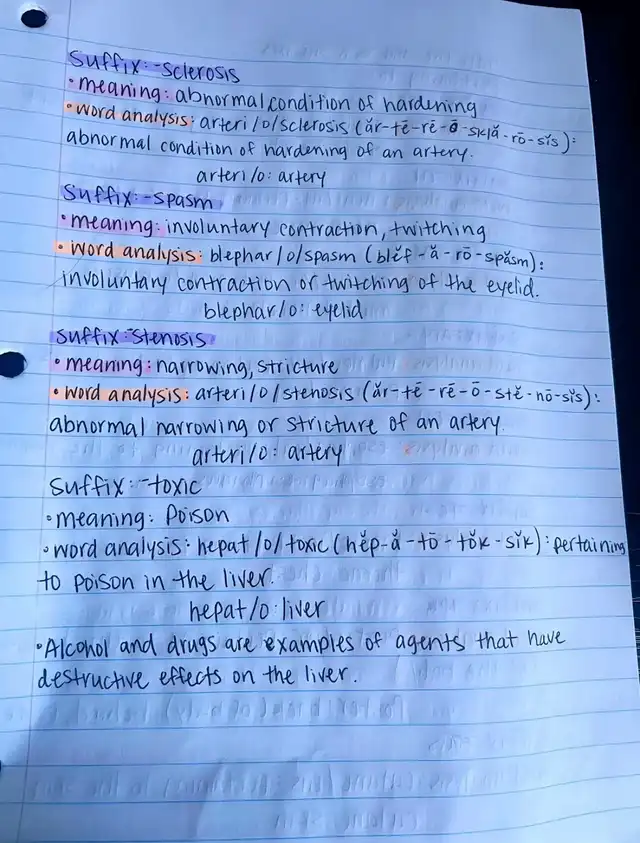 Suffix: -Sclerosis
• meaning: abnormal condition of hardening
• word analysis: arteri/o/sclerosis (ăr-tē-rē-ō-sklă-rō-sĭs):
abnormal condition of hardening of an artery.
arteri/o: artery
Suffix: -spasm
• meaning: involuntary contraction, twitching
• word analysis: blephar/o/spasm (blĕf-ă-rō-spăsm):
involuntary contraction or twitching of the eyelid.
blephar/o: eyelid
Suffix: -Stenosis
• meaning: narrowing, stricture
• word analysis: arteri/o/stenosis (ăr-tē-rē-ō-stĕ-nō-sĭs):
abnormal narrowing or stricture of an artery.
arteri/o: artery
Suffix: -toxic
• meaning: Poison
• word analysis: hepat/o/toxic (hĕp-ă-tō-tŏk-sĭk): pertaining
to poison in the liver.
hepat/o: liver
• Alcohol and drugs are examples of agents that have
destructive effects on the liver.